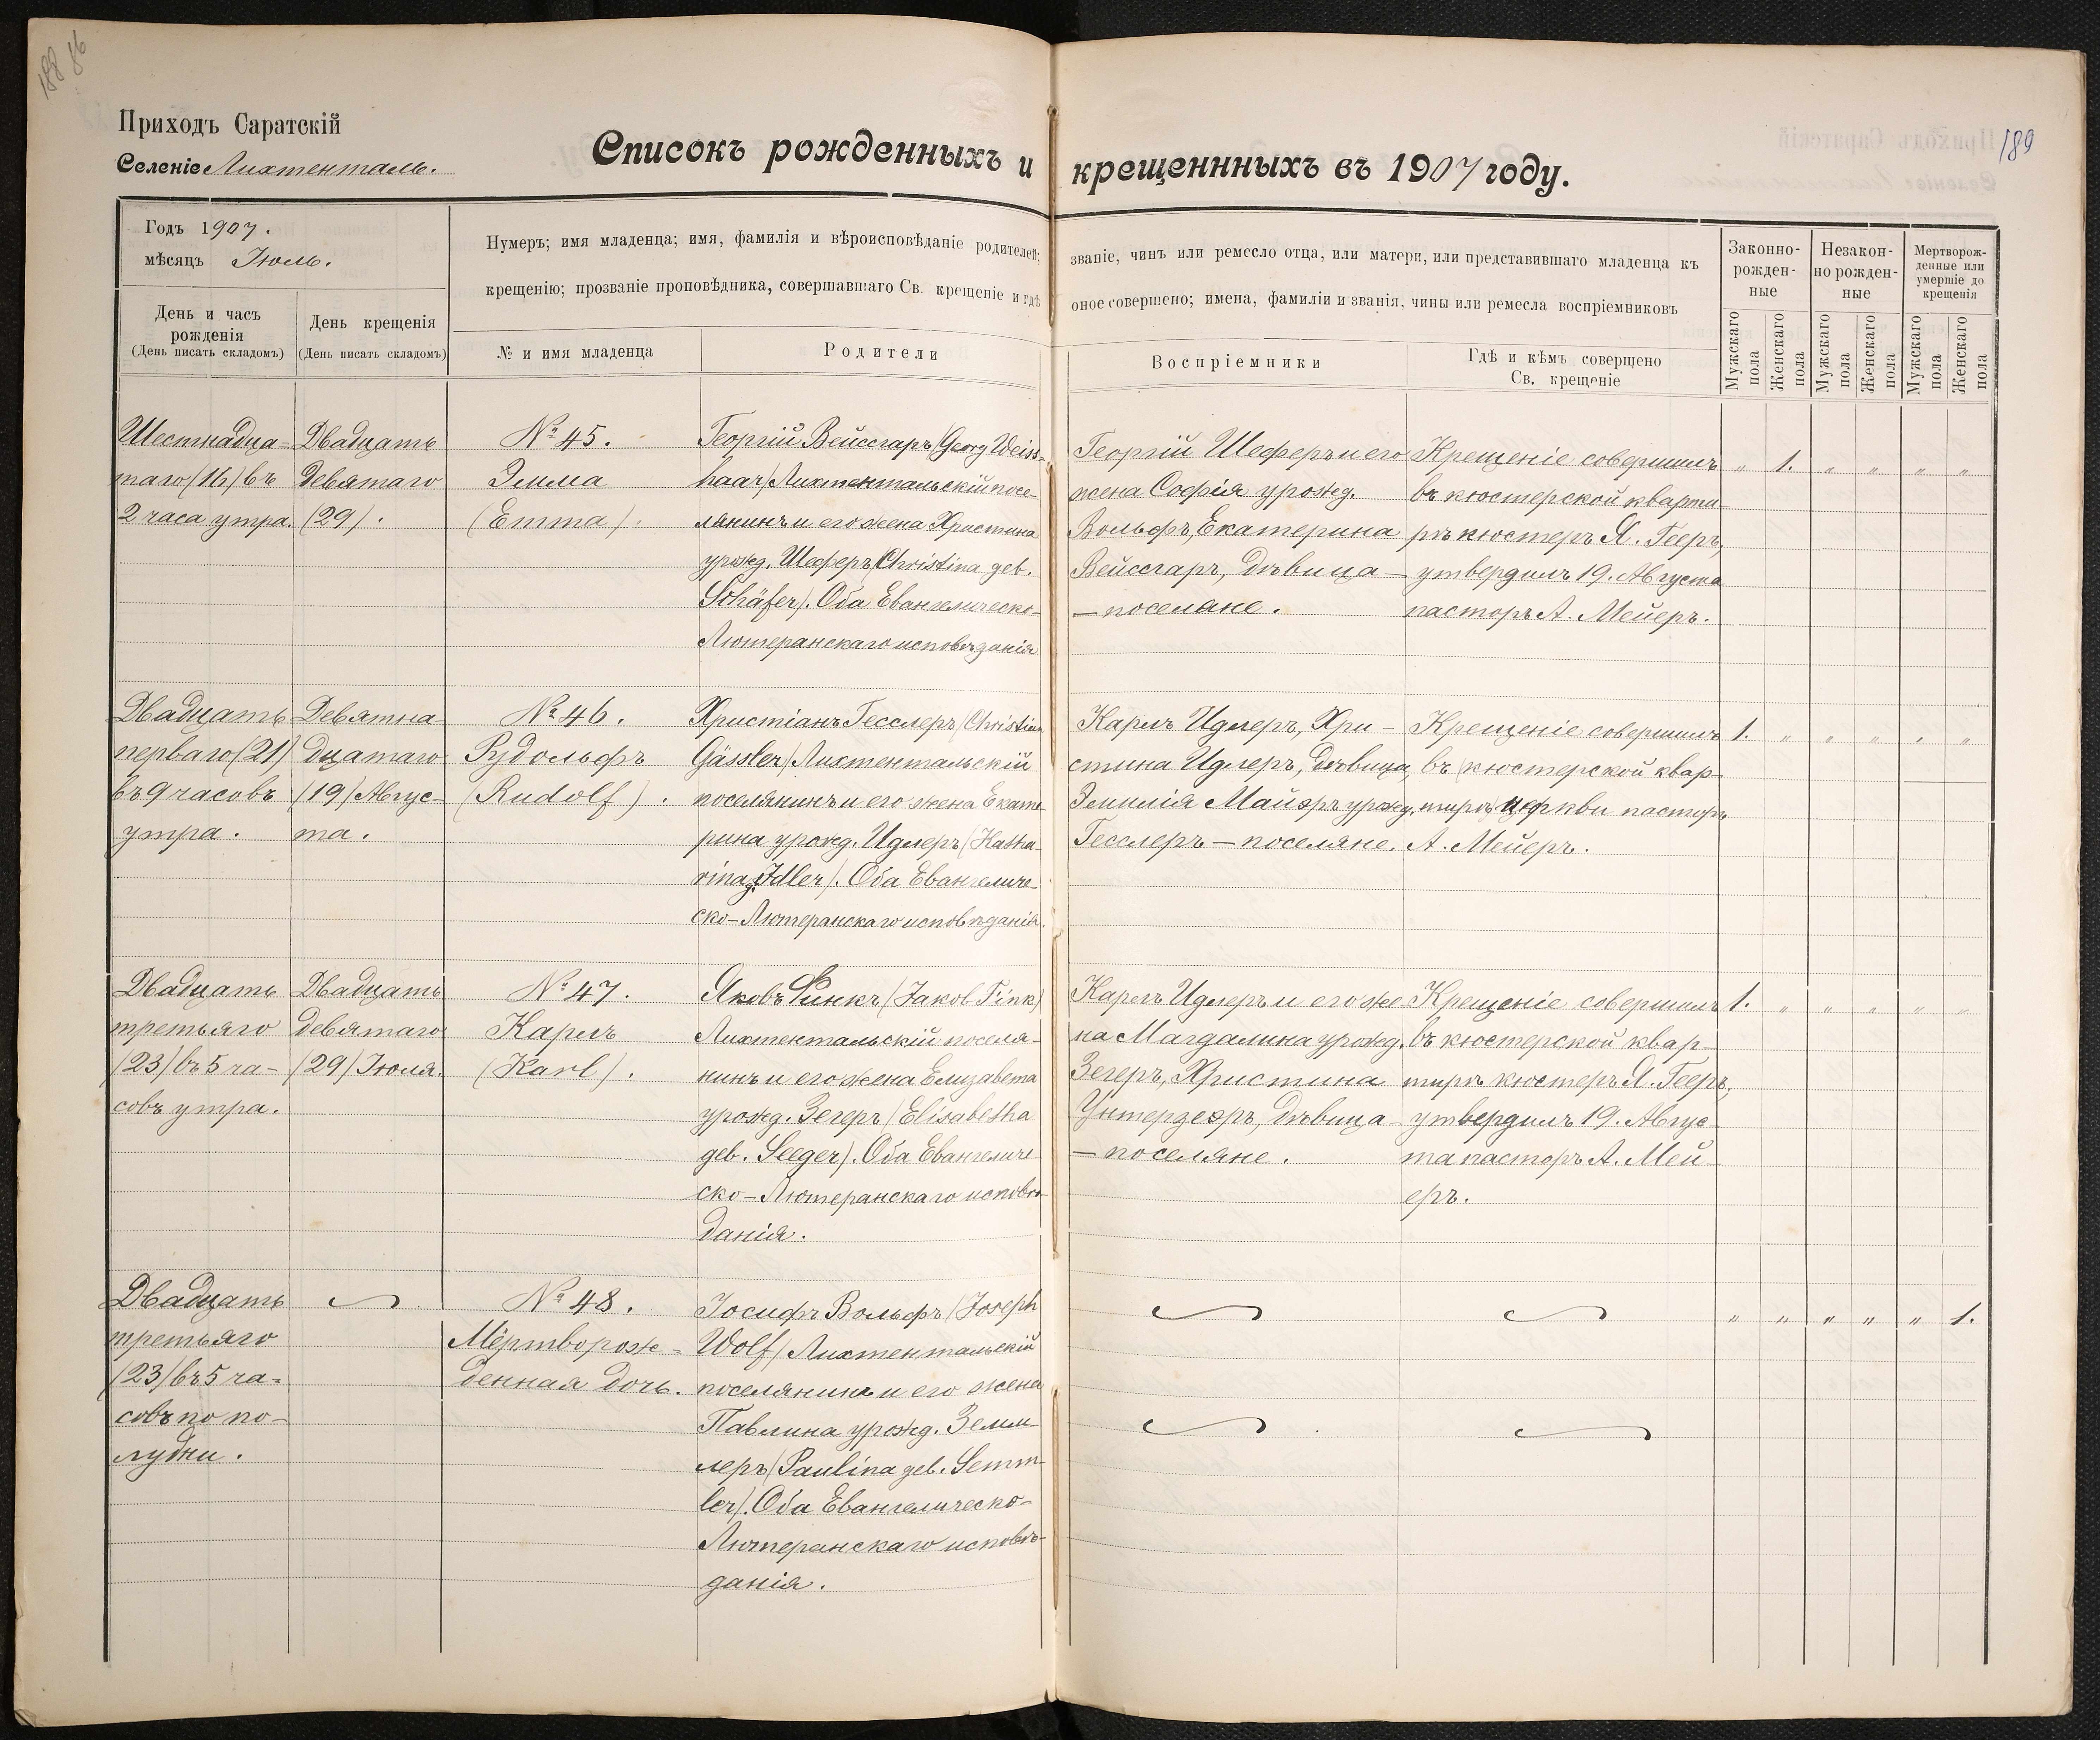 188 86
189
Приходъ Саратскій
Селеніе Лихтенталь.
Списокъ рожденныхъ и крещеннныхъ въ 1907 году.
Годъ 1907.
мѣсяцъ Іюль.
Нумеръ; имя младенца; имя, фамилія и вѣроисповѣданіе родителей; званіе, чинъ или ремесло отца, или матери, или представившаго младенца къ
крещенію; прозваніе проповѣдника, совершавшаго Св. крещеніе и гдѣ оное совершено; имена, фамиліи и званія, чины или ремесла воспріемниковъ
День и часъ
рожденія
(День писать складомъ)
День крещенія
(День писать складомъ)
№ и имя младенца
Родители
Воспріемники
Гдѣ и кѣмъ совершено
Св. крещеніе
Законно-
рожден-
ные
Незакон-
но рожден-
ные
Мертворож-
денные или
умершіе до
крещенія
Мужскаго
пола
Женскаго
пола
Мужскаго
пола
Женскаго
пола
Мужскаго
пола
Женскаго
пола
Шестнадца-
таго (16) въ
2 часа утра.
Двадцать
девятаго
(29).
№ 45.
Эмма
(Emma).
Георгій Вейссгаръ (Georg Weiss-
haar) Лихтентальскій посе-
лянинъ и его жена Христина
урожд. Шеферъ (Christina geb.
Schäfer). Оба Евангелическо-
Лютеранскаго исповѣданія
Георгій Шеферъ и его
жена Софія урожд.
Вольфъ, Екатерина
Вейссгаръ, дѣвица —
— поселяне.
Крещеніе совершилъ
въ кюстерской кварти-
рѣ кюстеръ Я. Гееръ,
утвердилъ 19. Августа
пасторъ А. Мейеръ.
" 1. " " " "
Двадцать
перваго (21)
въ 9 часовъ
утра.
Девятна-
дцатаго
(19) Авгус-
та.
№ 46.
Рудольфъ
(Rudolf).
Христіанъ Гесслеръ (Christian
Gässler) Лихтентальскій
поселянинъ и его жена Екате-
рина урожд. Идлеръ (Katha-
rina g. Idler). Оба Евангеличе-
ско-Лютеранскаго исповѣданія.
Карлъ Идлеръ, Хри-
стина Идлеръ, дѣвица,
Эмилія Майэръ урожд.
Гесслеръ — поселяне.
Крещеніе совершилъ
въ (кюстерской квар-
тирѣ) церкви пасторъ
А. Мейеръ.
1. " " " " "
Двадцать
третьяго
(23) въ 5 ча-
совъ утра.
Двадцать
девятаго
(29) Іюля.
№ 47.
Карлъ
(Karl).
Яковъ Финкъ (Jakob Fink)
Лихтентальскій поселя-
нинъ и его жена Елизавета
урожд. Зегеръ (Elisabetha
geb. Seeger). Оба Евангеличе-
ско-Лютеранскаго исповѣ-
данія.
Карлъ Идлеръ и его же-
на Магдалина урожд.
Зегеръ, Христина
Унтерзеэръ, дѣвица —
— поселяне.
Крещеніе совершилъ
въ кюстерской квар-
тирѣ кюстеръ Я. Гееръ,
утвердилъ 19. Авгус-
та пасторъ А. Мей-
еръ.
1. " " " " "
Двадцать
третьяго
(23) въ 5 ча-
совъ по по-
лудни.
№ 48.
Мёртворож-
денная дочь.
Іосифъ Вольфъ (Joseph
Wolf) Лихтентальскій
поселянинъ и его жена
Павлина урожд. Земм-
леръ (Paulina geb. Semm-
ler). Оба Евангелическо-
Лютеранскаго исповѣ-
данія.
" " " " " 1.